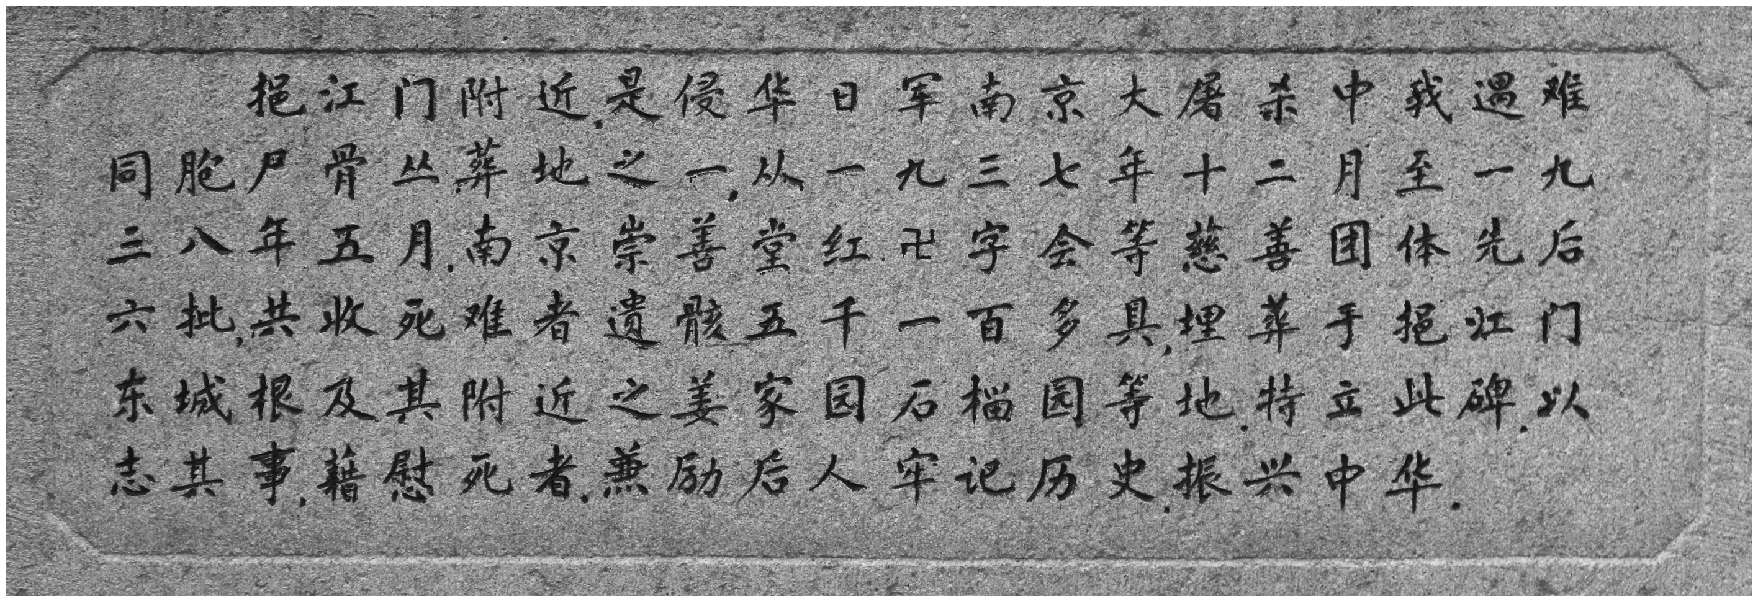 挹江门附近,是侵华日军南京大屠杀中我遇难
同胞尸骨丛葬地之一,从一九三七年十二月至一九
三八年五月,南京崇善堂红卍字会等慈善团体先后
六批,共收死难者遗骸五千一百多具,埋葬于挹江门
东城根及其附近之姜家园石榴园等地,特立此碑,以
志其事,藉慰死者,兼励后人牢记历史,振兴中华.